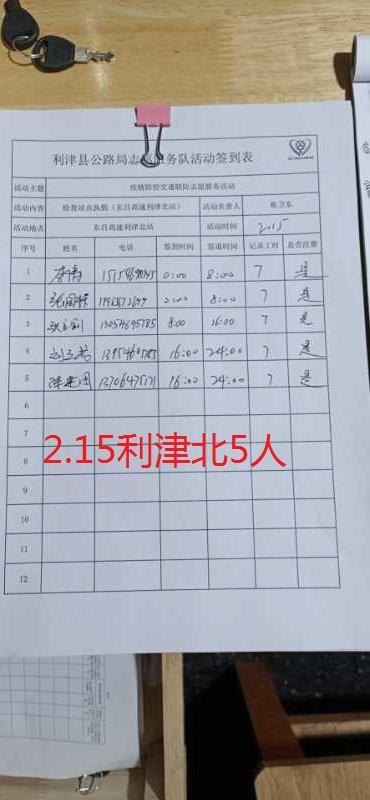 利津县公路局志愿服务队活动签到表
活动主题 疫情防控交通联防志愿服务活动
活动内容 检查站点执勤（东吕高速利津北站） 活动负责人 崔卫东
活动地点 东吕高速利津北站 活动时间 2.15
序号 姓名 电话 签到时间 签退时间 记录工时 是否注册
1 0:00 8:00 7 是
2 0:00 8:00 7 是
3 13054695785 8:00 16:00 7 是
4 16:00 24:00 7 是
5 13706475171 16:00 24:00 7 是
6
7
2.15利津北5人
8
9
10
11
12